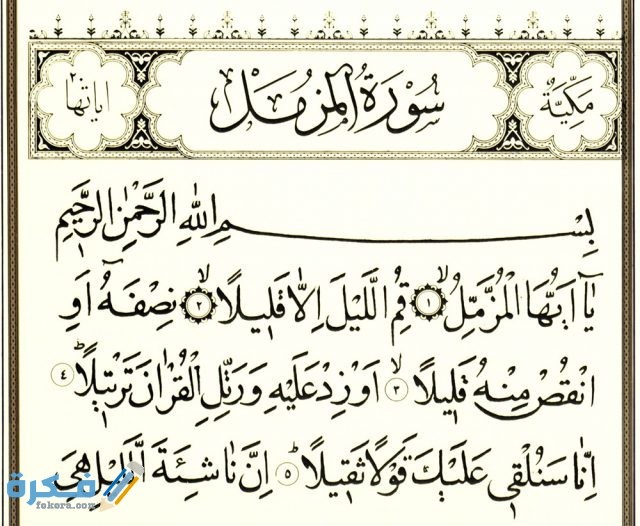 مكية
سورة المزمل
اياتها ٢٠
بسم الله الرحمن الرحيم
يَٓا اَيُّهَا الْمُزَّمِّلُۙ ﴿١﴾ قُمِ الَّيْلَ اِلَّا قَلٖيلًاۙ ﴿٢﴾ نِصْفَهُٓ اَوِ
انْقُصْ مِنْهُ قَلٖيلًاۙ ﴿٣﴾ اَوْ زِدْ عَلَيْهِ وَرَتِّلِ الْقُرْاٰنَ تَرْتٖيلًاؕ ﴿٤﴾
اِنَّا سَنُلْقٖي عَلَيْكَ قَوْلًا ثَقٖيلًاؕ ﴿٥﴾ اِنَّ نَاشِئَةَ الَّيْلِ هِيَ
فكرة
fekera.com